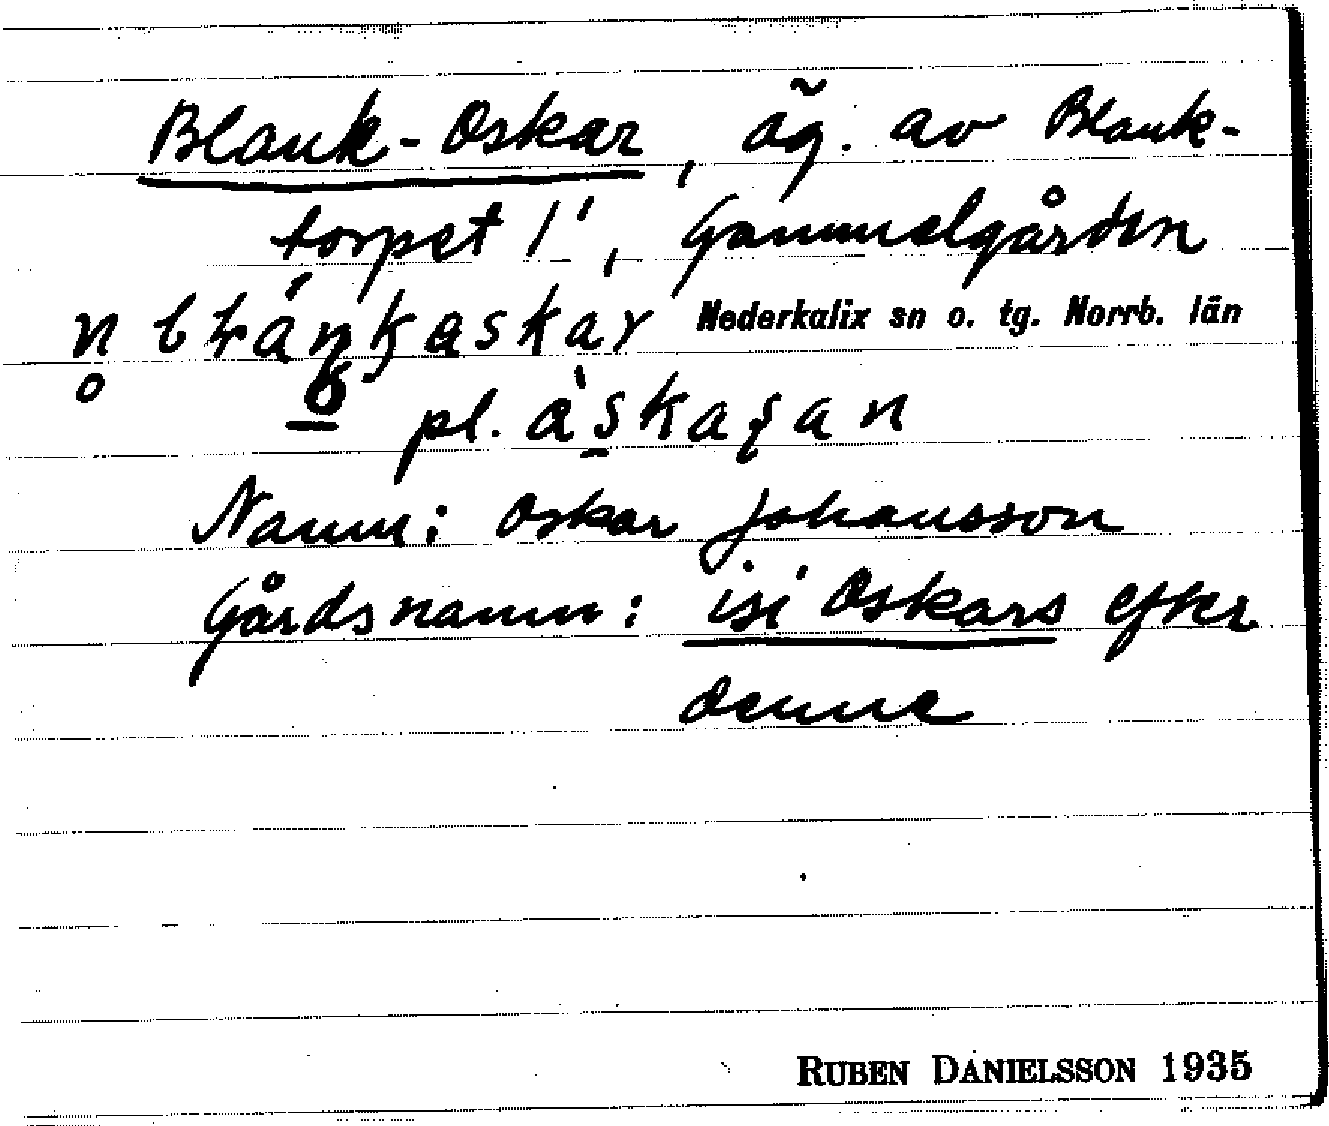 Blank-Oskar, äg. av Blank-
torpet 1', Gammelgården
Nederkalix sn o. tg. Norrb. län
pl. àskaṣan
Namn: Oskar Johansson
Gårdsnamn: isi Oskars efter
denne
RUBEN DANIELSSON 1935